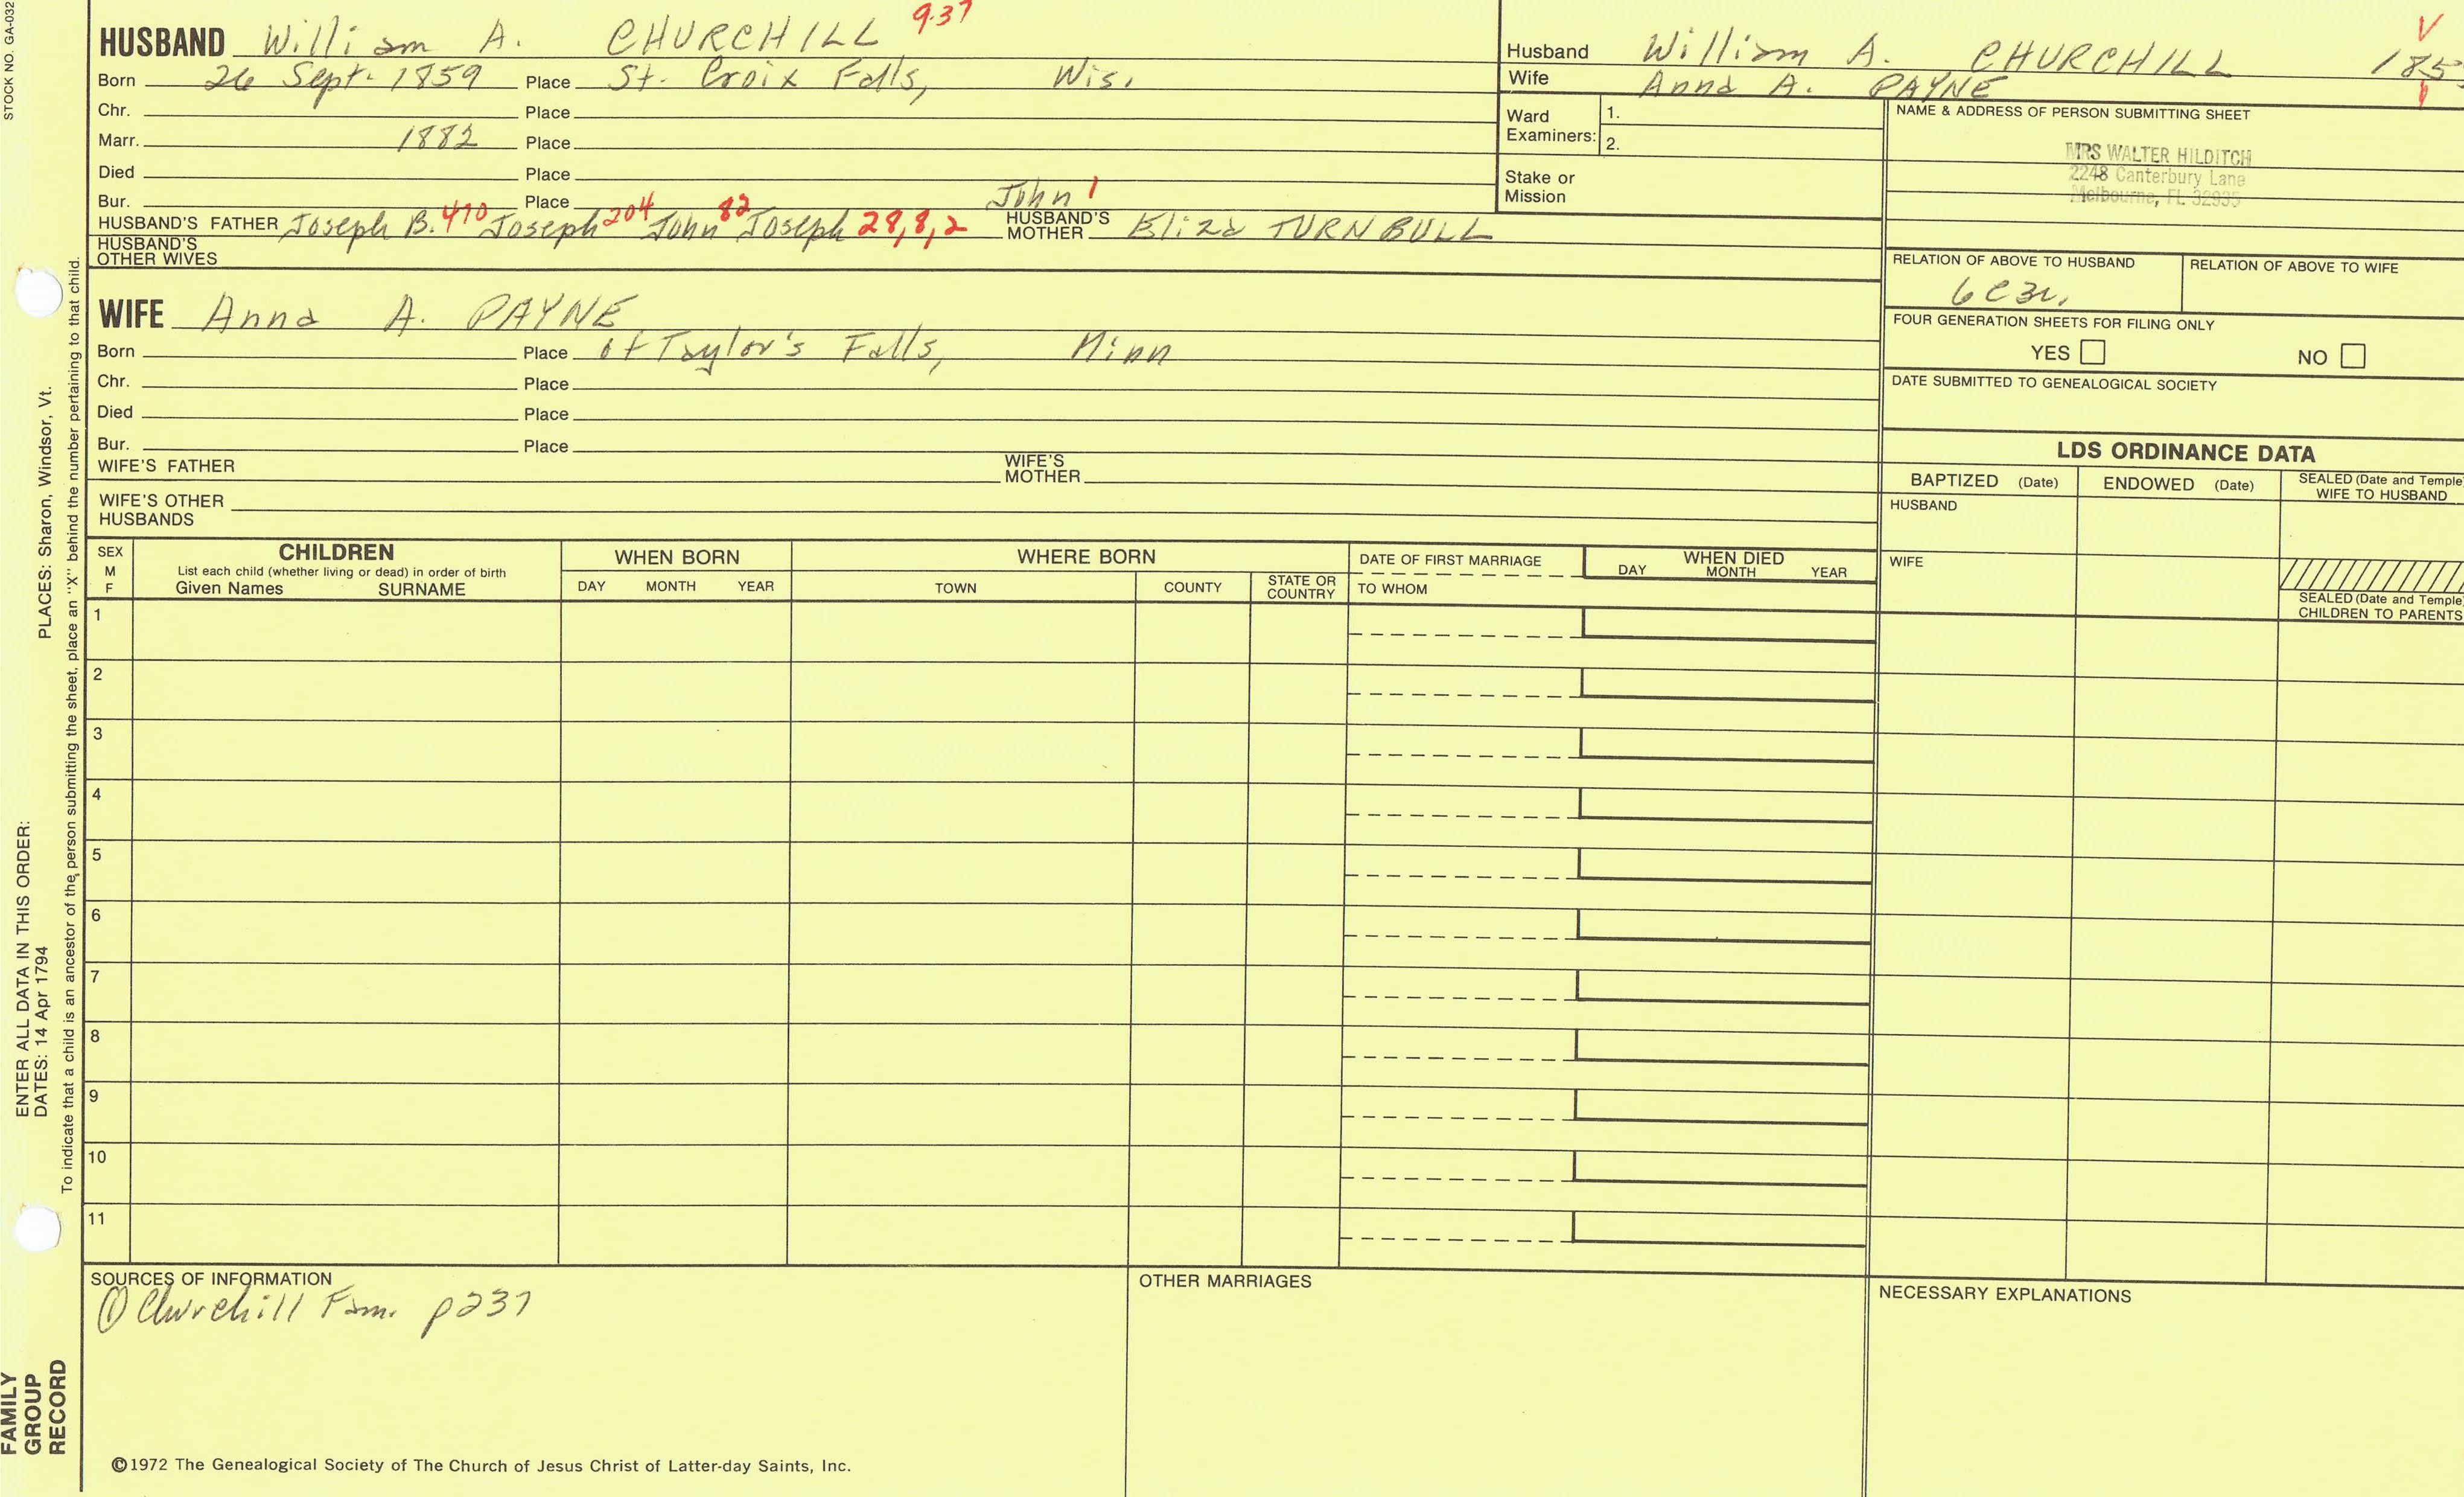 STOCK NO. GA-032
PLACES: Sharon, Windsor, Vt.
ENTER ALL DATA IN THIS ORDER:
DATES: 14 Apr 1794
To indicate that a child is an ancestor of the person submitting the sheet, place an "X" behind the number pertaining to that child.
FAMILY
GROUP
RECORD
HUSBAND William A. CHURCHILL 937
Born 26 Sept. 1859 Place St. Croix Falls, Wis.
Chr. Place
Marr. 1882 Place
Died Place
Bur. Place
John 1
HUSBAND'S FATHER Joseph B. 470 Joseph 204 John 82 Joseph 28,8,2 HUSBAND'S MOTHER Eliza TURNBULL
HUSBAND'S
OTHER WIVES
WIFE Anna A. PAYNE
Born Place of Taylor's Falls, Minn
Chr. Place
Died Place
Bur. Place
WIFE'S FATHER WIFE'S MOTHER
WIFE'S OTHER
HUSBANDS
Husband William A. CHURCHILL 185
Wife Anna A. PAYNE
Ward
Examiners: 1.
2.
Stake or
Mission
NAME & ADDRESS OF PERSON SUBMITTING SHEET
MRS WALTER HILDITCH
2248 Canterbury Lane
Melbourne, FL 32935
RELATION OF ABOVE TO HUSBAND RELATION OF ABOVE TO WIFE
6C3r.
FOUR GENERATION SHEETS FOR FILING ONLY
YES NO
DATE SUBMITTED TO GENEALOGICAL SOCIETY
LDS ORDINANCE DATA
BAPTIZED (Date) ENDOWED (Date) SEALED (Date and Temple)
WIFE TO HUSBAND
HUSBAND
WIFE
SEALED (Date and Temple)
CHILDREN TO PARENTS
SEX
M
F
CHILDREN
List each child (whether living or dead) in order of birth
Given Names SURNAME
WHEN BORN
DAY MONTH YEAR
WHERE BORN
TOWN COUNTY STATE OR COUNTRY
DATE OF FIRST MARRIAGE
TO WHOM
WHEN DIED
DAY MONTH YEAR
1
2
3
4
5
6
7
8
9
10
11
SOURCES OF INFORMATION
① Churchill Fam. p237
OTHER MARRIAGES
NECESSARY EXPLANATIONS
©1972 The Genealogical Society of The Church of Jesus Christ of Latter-day Saints, Inc.